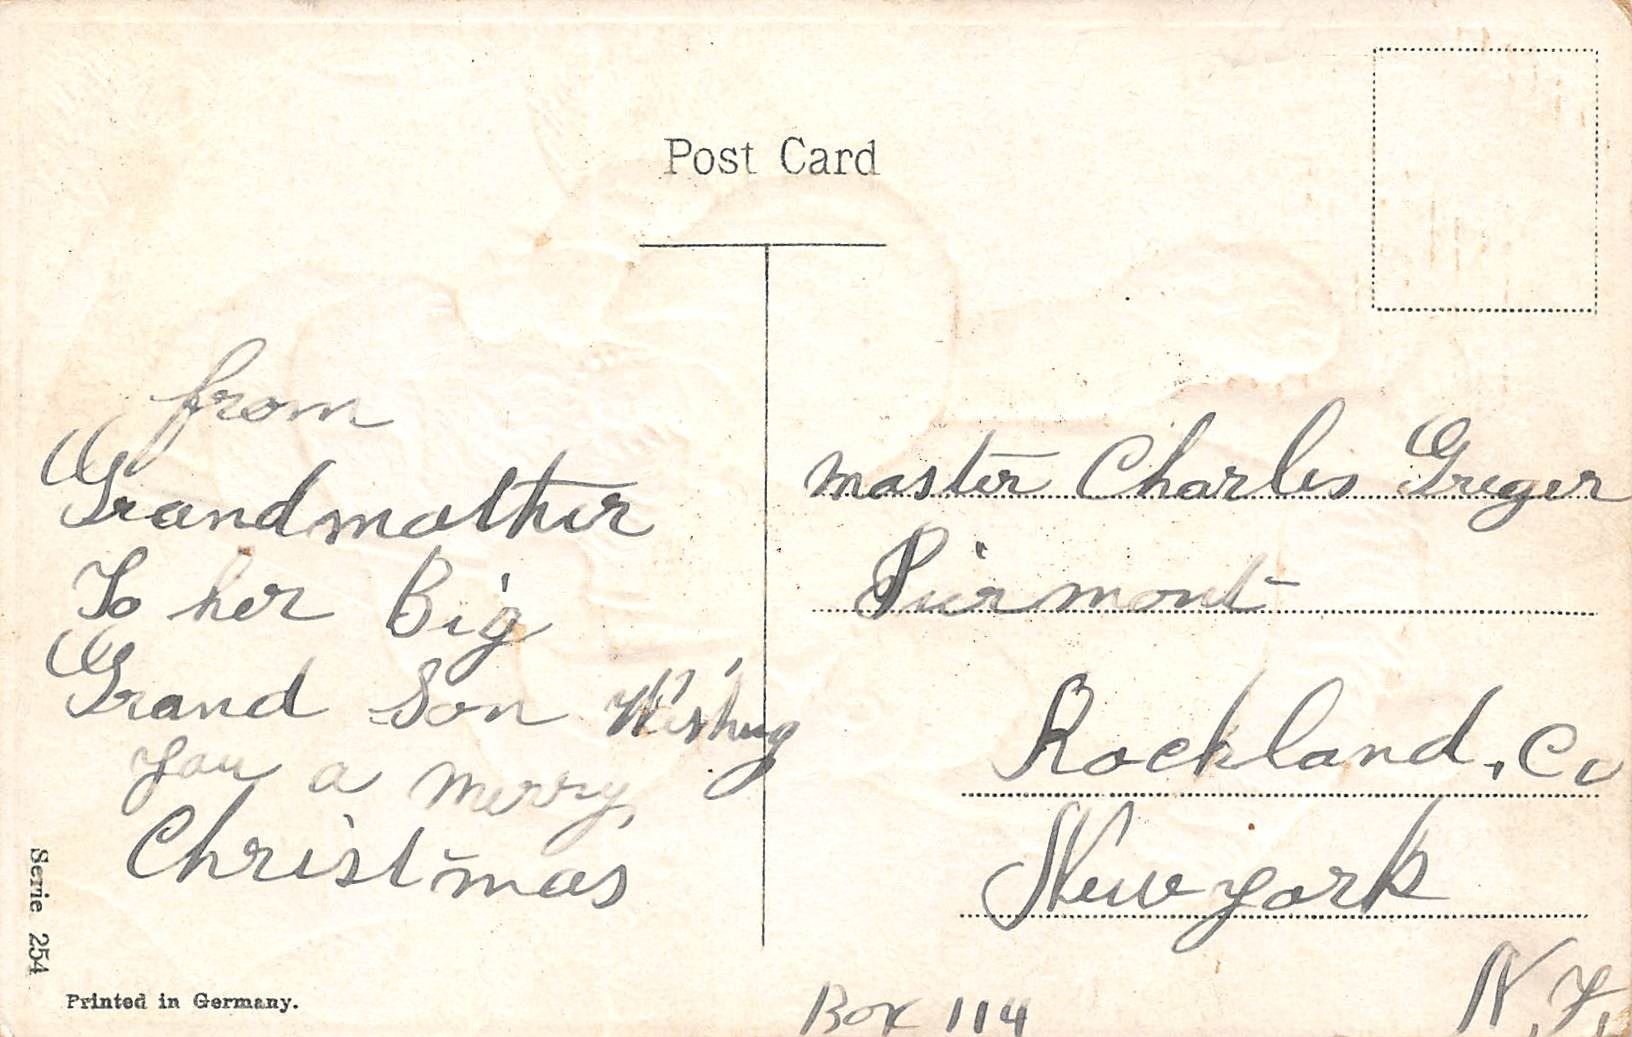 Post Card
from
Grandmother
To her Big
Grand Son Wishing
you a merry
Christmas
master Charles Greger
Piermont
Rockland, Co
New york
N.Y.
Box 114
Serie 254
Printed in Germany.